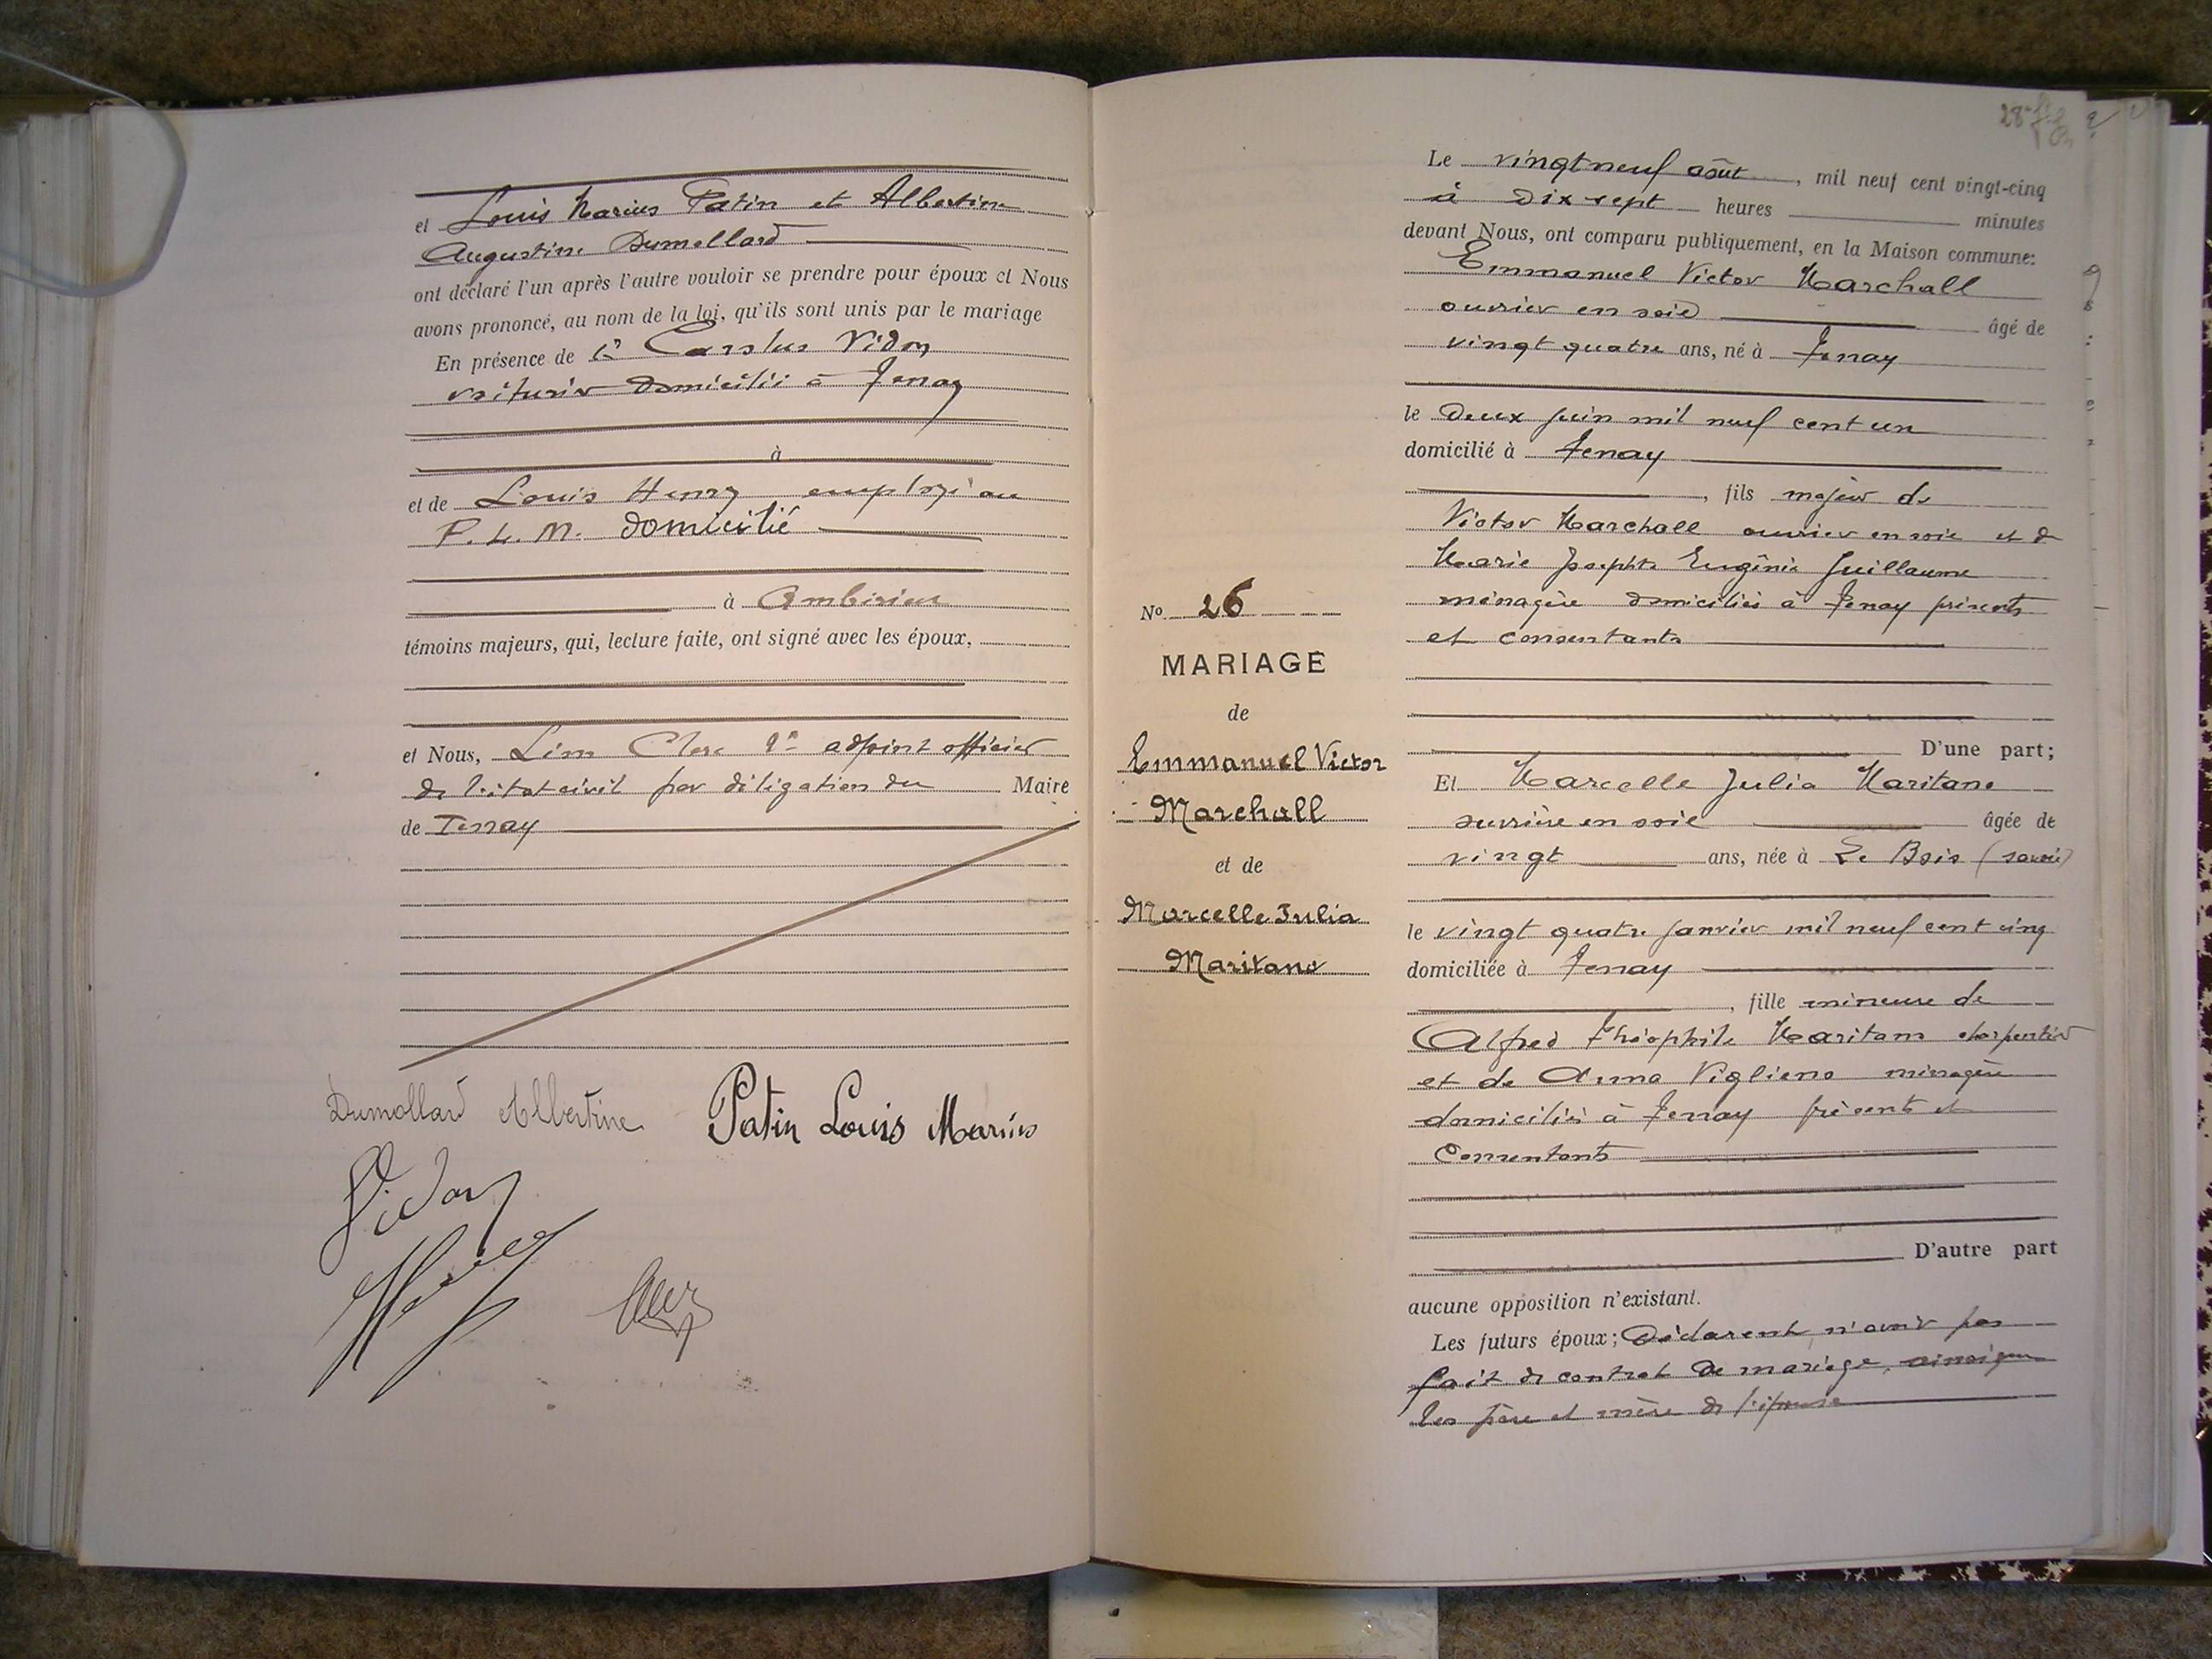 et Louis Marius Patin et Albertine
Augustine Dumollard
ont déclaré l'un après l'autre vouloir se prendre pour époux et Nous
avons prononcé, au nom de la loi, qu'ils sont unis par le mariage
En présence de Vidon
voiturier domicilié à Tenay
à
et de Louis Henry employé au
P. L. M. domicilié
à Ambérieu
témoins majeurs, qui, lecture faite, ont signé avec les époux,
et Nous, Léon Clerc 1er adjoint officier
de l'état civil par délégation du Maire
de Tenay
Dumollard Albertine Patin Louis Marius
Vidon
Henry
No 26
MARIAGE
de
Emmanuel Victor
Marchall
et de
Marcelle Julia
Maritano
Le vingt neuf août, mil neuf cent vingt-cinq
à dix sept heures minutes
devant Nous, ont comparu publiquement, en la Maison commune:
Emmanuel Victor Marchall
ouvrier en soie âgé de
vingt quatre ans, né à Tenay
le deux juin mil neuf cent un
domicilié à Tenay
, fils majeur de
Victor Marchall ouvrier en soie et de
Marie Josephte Eugénie Guillaume
ménagère domiciliés à Tenay présents
et consentants
D'une part;
Et Marcelle Julia Maritano
ouvrière en soie âgée de
vingt ans, née à Le Bois (savoie)
le vingt quatre janvier mil neuf cent cinq
domiciliée à Tenay
, fille mineure de
Alfred Théophile Maritano charpentier
et de Anna Viglieno ménagère
domiciliés à Tenay présents et
Consentants
D'autre part
aucune opposition n'existant.
Les futurs époux; Déclarent n'avoir pas
fait de contrat de mariage, ainsi que
les père et mère de l'épouse